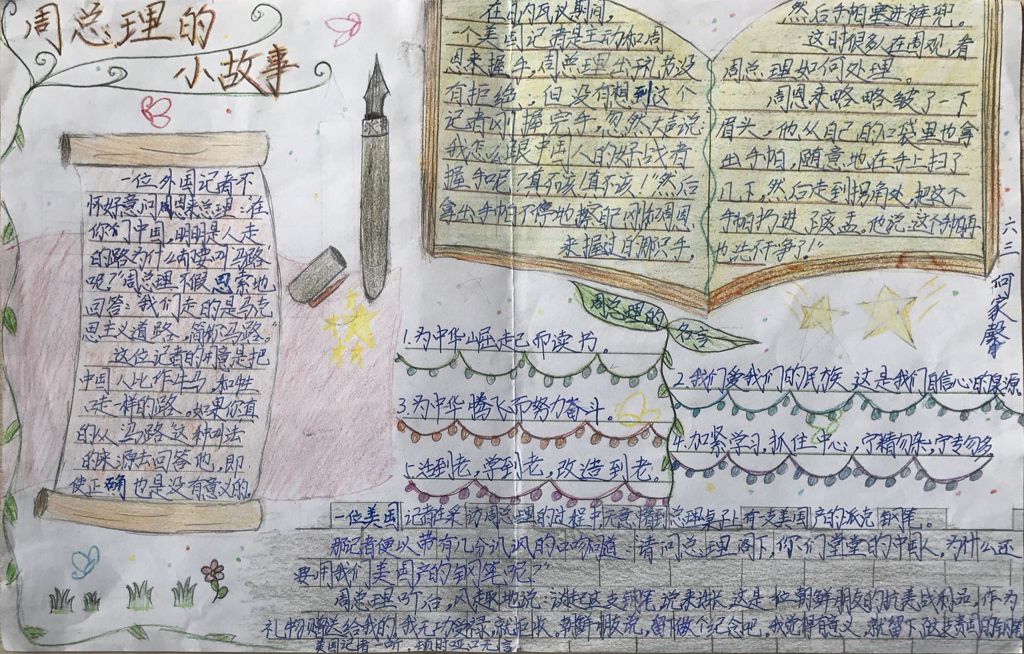 周总理的
小故事
一位外国记者不
怀好意问周恩来总理："在
你们中国，明明是人走
的路为什么却要叫马路
呢？"周总理不假思索地
回答："我们走的是马克
思主义道路，简称马路。"
这位记者的用意是把
中国人比作牛马，和牲
口走一样的路。如果你真
的从"马路"这种叫法
的来源去回答他，即
使正确也是没有意义的。
在日内瓦议期间，
一个美国记者是主动和周
恩来握手，周总理出于礼节没
有拒绝，但没有想到这个
记者刚握完手，忽然大声说：
"我怎么跟中国人的好战者
握手呢？真不该！真不该！"然后
拿出手帕不停地擦自己刚和周恩
来握过的那只手，
然后手帕塞进裤兜。
这时很多人在围观，看
周总理如何处理。
周恩来略略皱了一下
眉头，他从自己的口袋里也拿
出手帕，随意地在手上扫了
几下，然后走到拐角处，把这个
手帕扔进了痰盂。他说："这个手帕再
也洗不干净了！"
六三 何家馨
周总理的 名言
1.为中华崛起而读书。
2.我们爱我们的民族，这是我们自信心的泉源。
3.为中华腾飞而努力奋斗。
4.加紧学习，抓住中心，宁精勿杂，宁专勿多。
5.活到老，学到老，改造到老。
一位美国记者在采访周总理的过程中无意看到总理桌子上有支美国产的派克钢笔。
那记者便以带有几分讥讽的口吻问道："请问总理阁下，你们堂堂的中国人，为什么还
要用我们美国产的钢笔呢？"
周总理听后，风趣地说："谈起这支钢笔，说来话长，这是一位朝鲜朋友的抗美战利品，作为
礼物赠送给我的。我无功受禄，就拒收。朝鲜朋友说，留下做个纪念吧。我觉得有意义，就留下了这支贵国的钢笔
美国记者一听，顿时哑口无言。